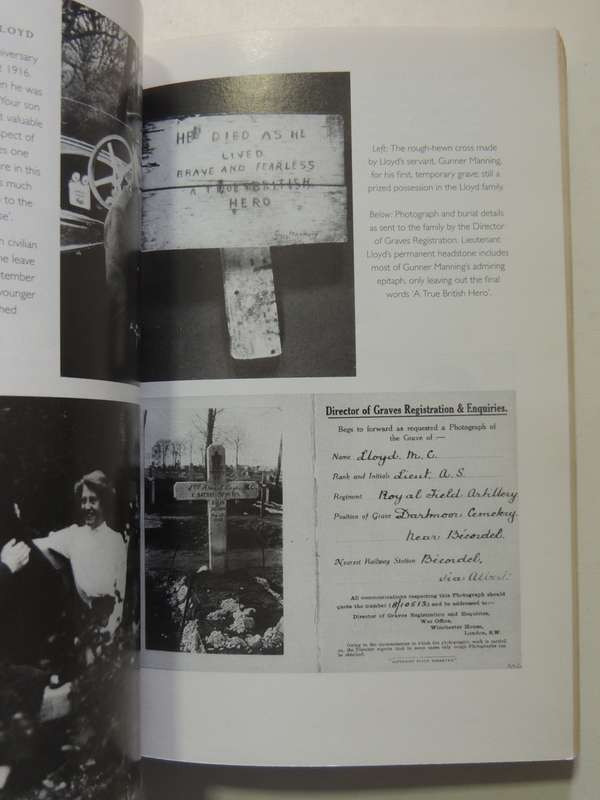 LOYD
iversary
1916.
en he was
'Your son
t valuable
spect of
es one
re in this
s much
to the
se'.
n civilian
he leave
tember
younger
hed
HE DIED AS HE
LIVED
BRAVE AND FEARLESS
A TRUE BRITISH
HERO
Left: The rough-hewn cross made
by Lloyd's servant, Gunner Manning,
for his first, temporary grave, still a
prized possession in the Lloyd family.
Below: Photograph and burial details
as sent to the family by the Director
of Graves Registration. Lieutenant
Lloyd's permanent headstone includes
most of Gunner Manning's admiring
epitaph, only leaving out the final
words 'A True British Hero'.
Director of Graves Registration & Enquiries.
Begs to forward as requested a Photograph of
the Grave of :—
Name Lloyd. M.C.
Rank and Initials Lieut. A.S.
Regiment Royal Field Artillery
Position of Grave Dartmoor Cemetery
Near Bécordel.
Nearest Railway Station Bécordel,
via Albert.
All communications respecting this Photograph should
quote the number (8/10513) and be addressed to:—
Director of Graves Registration and Enquiries,
War Office,
Winchester House,
London, S.W.
Owing to the circumstances in which the photographic work is carried
on, the Director regrets that in some cases only rough Photographs can
be obtained.
"COPYRIGHT FULLY RESERVED."